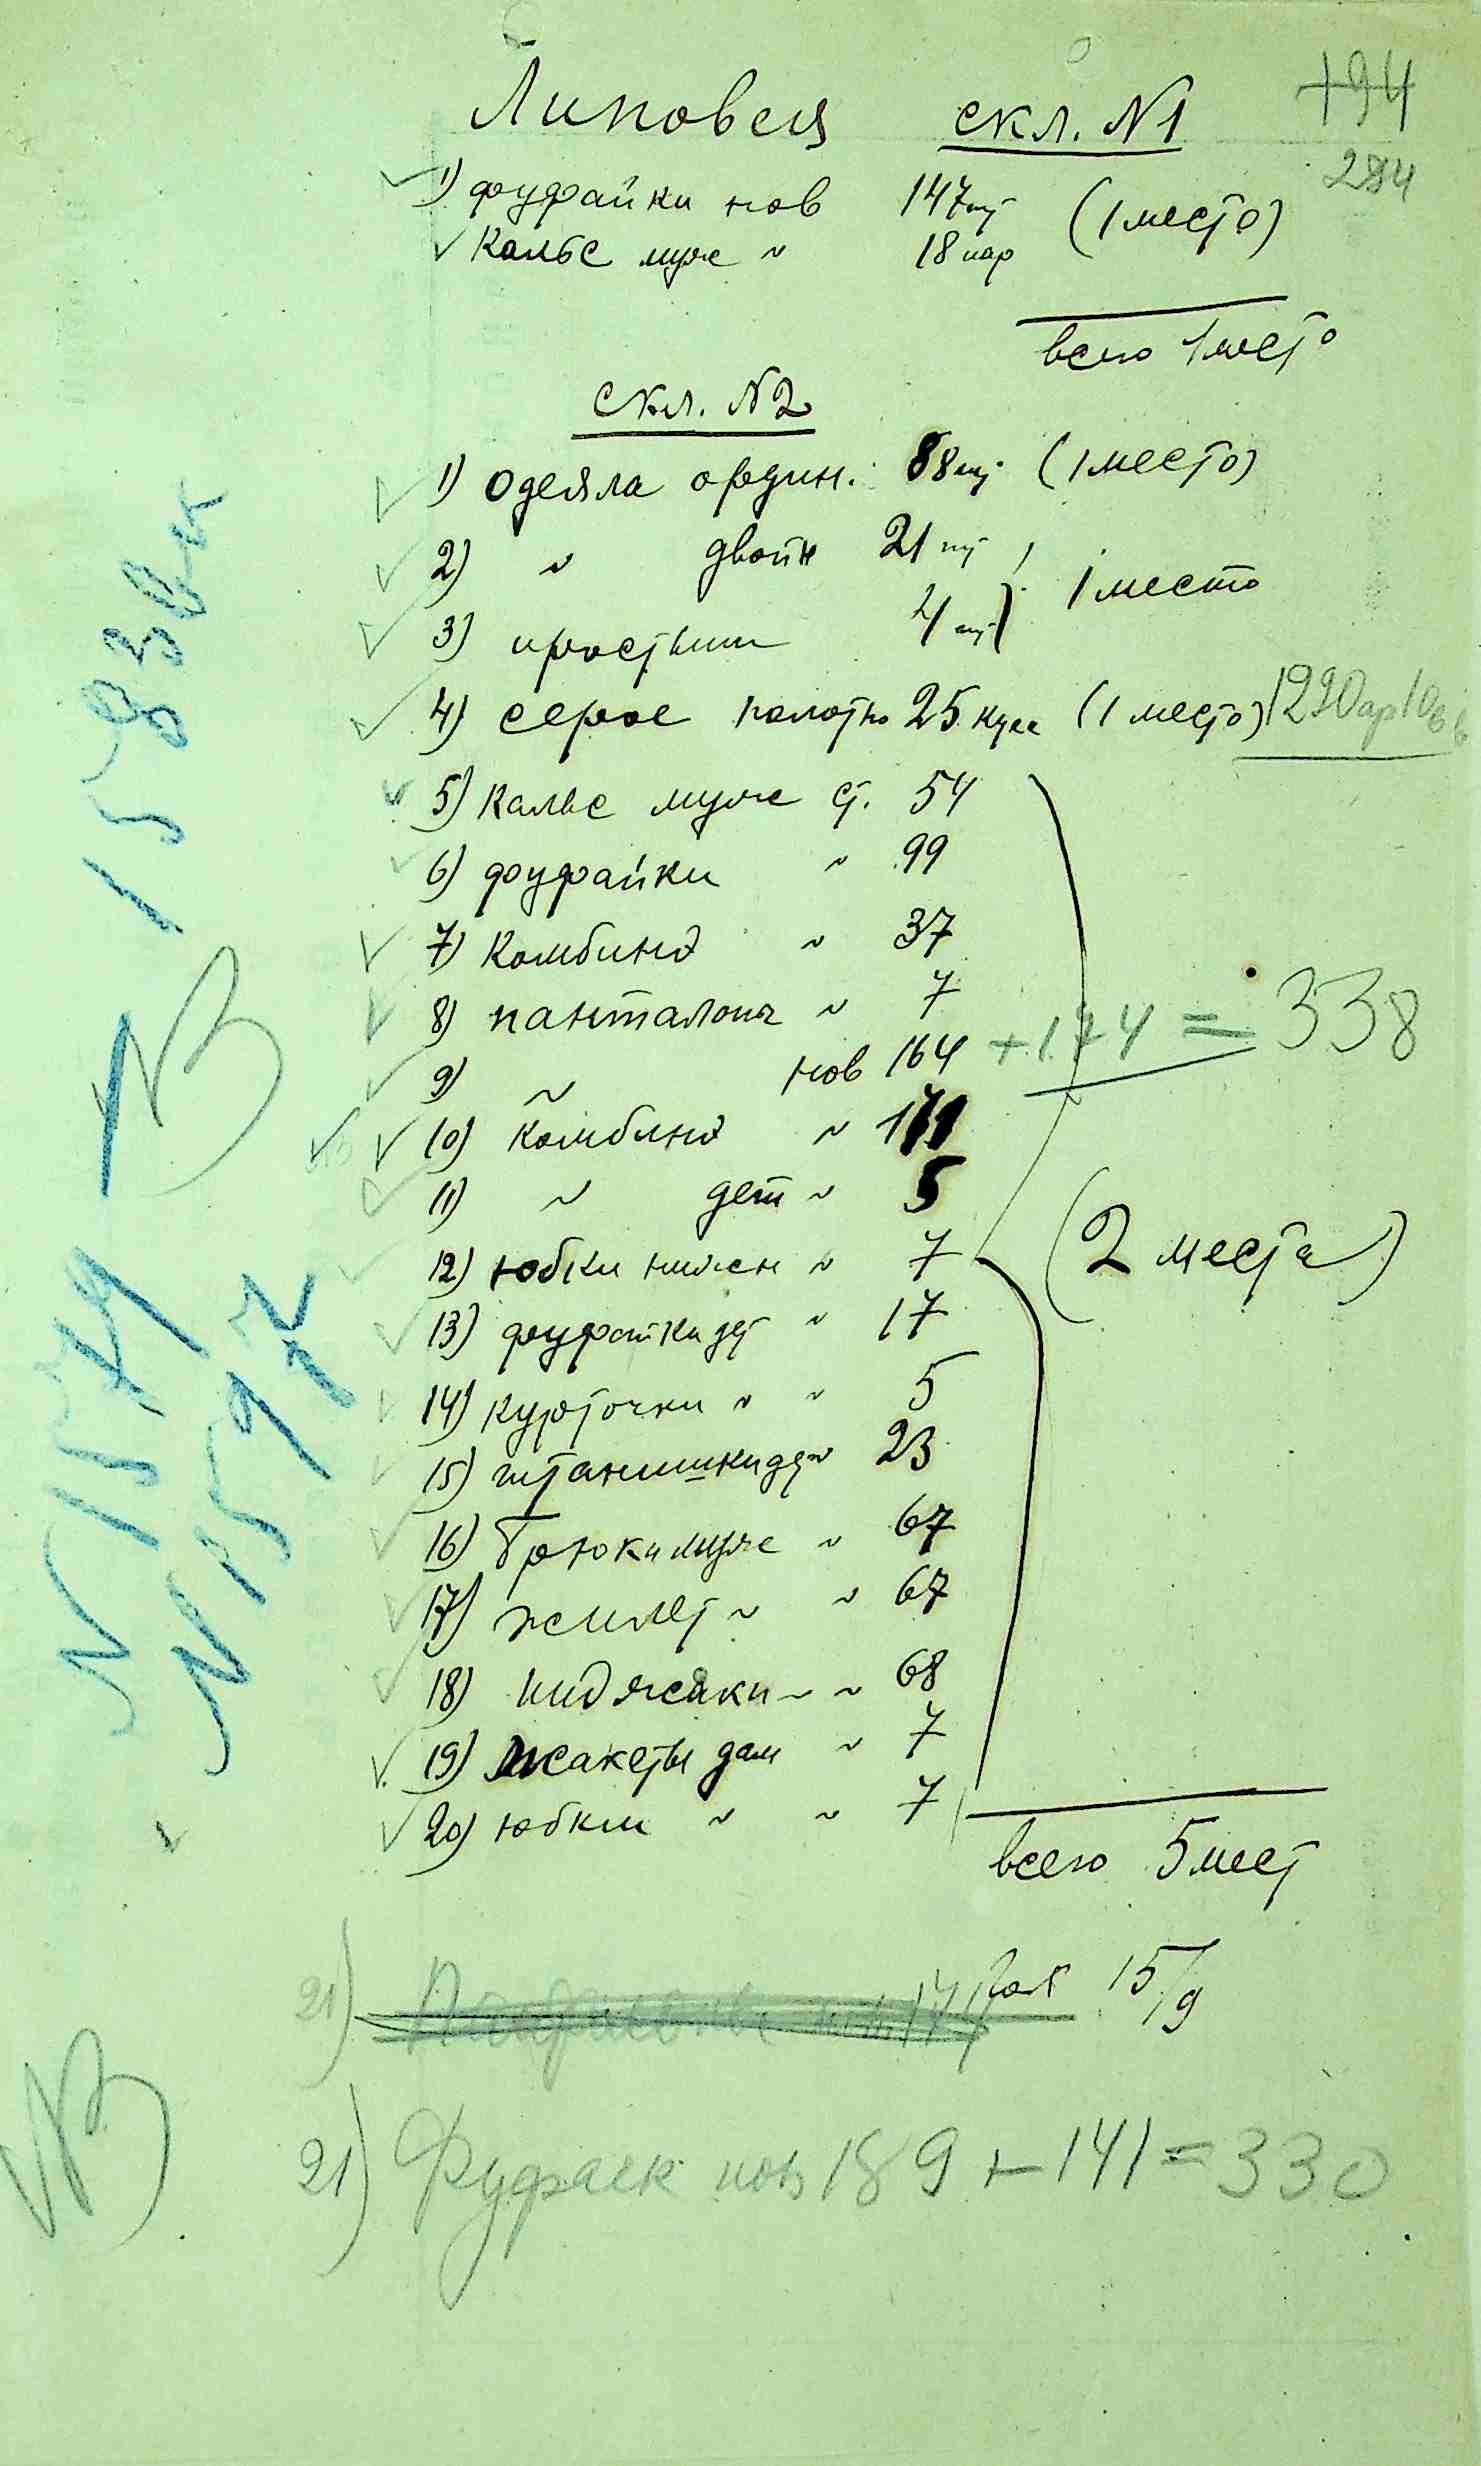 Липовец скл. №1
284
1) фуфайки нов 147 шт (1 место)
Кальс муж " 18 пар
всего 1 место
скл. №2
1) Одеяла ордин. 88 шт (1 место)
2) " двойн 21 шт
3) простын 4 шт } 1 место
4) серое полотно 25 куск (1 место) 1290 ар 10 в
5) Кальс муж ст. 54
6) фуфайки " 99
7) Комбинэ " 37
8) панталоны " 7
9) " нов 164 + 174 = 338
10) Комбинэ " 171
11) " дет " 5
12) юбки нижн " 7 (2 места)
13) фуфайки дет " 17
14) курточки " " 5
15) штанишки дет " 23
16) Брюки муж " 67
17) жилет " " 67
18) пиджаки " " 68
19) Жакеты дам " 7
20) юбки " " 7
всего 5 мест
21) 15/9
21) Фуфаек нов 189 + 141 = 330
№ 1579
№ 1597